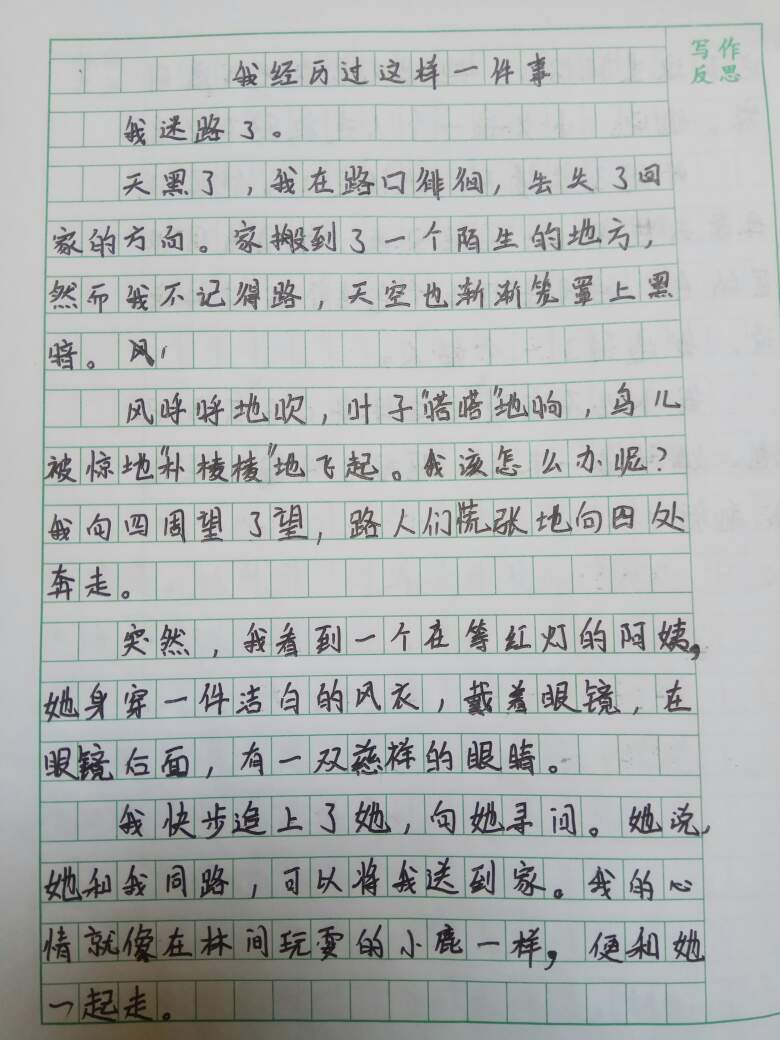 写作
反思
我经历过这样一件事
我迷路了。
天黑了，我在路口徘徊，去失了回
家的方向。家搬到了一个陌生的地方，
然而我不记得路，天空也渐渐笼罩上黑
暗。风
风呼呼地吹，叶子“嗒嗒”地响，鸟儿
被惊地“朴棱棱”地飞起。我该怎么办呢？
我向四周望了望，路人们慌张地向四处
奔走。
突然，我看到一个在等红灯的阿姨，
她身穿一件洁白的风衣，戴着眼镜，在
眼镜后面，有一双慈祥的眼睛。
我快步追上了她，向她寻问。她说，
她和我同路，可以将我送到家。我的心
情就像在林间玩耍的小鹿一样，便和她
一起走。